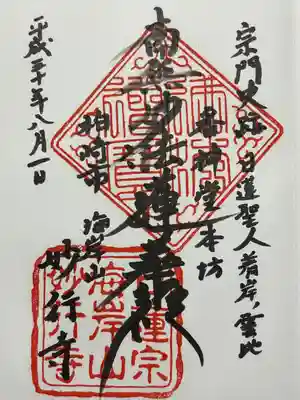 宗門史跡日蓮聖人着岸ノ霊地
番神堂本坊
南無妙法蓮華経
柏崎市
海岸山
妙行寺
平成三十年八月一日
日蓮宗
海岸山
妙行寺